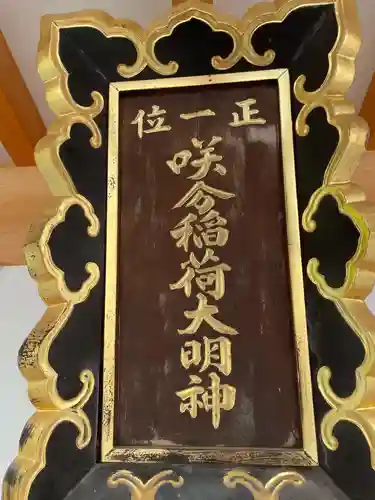 正一位
咲分稲荷大明神